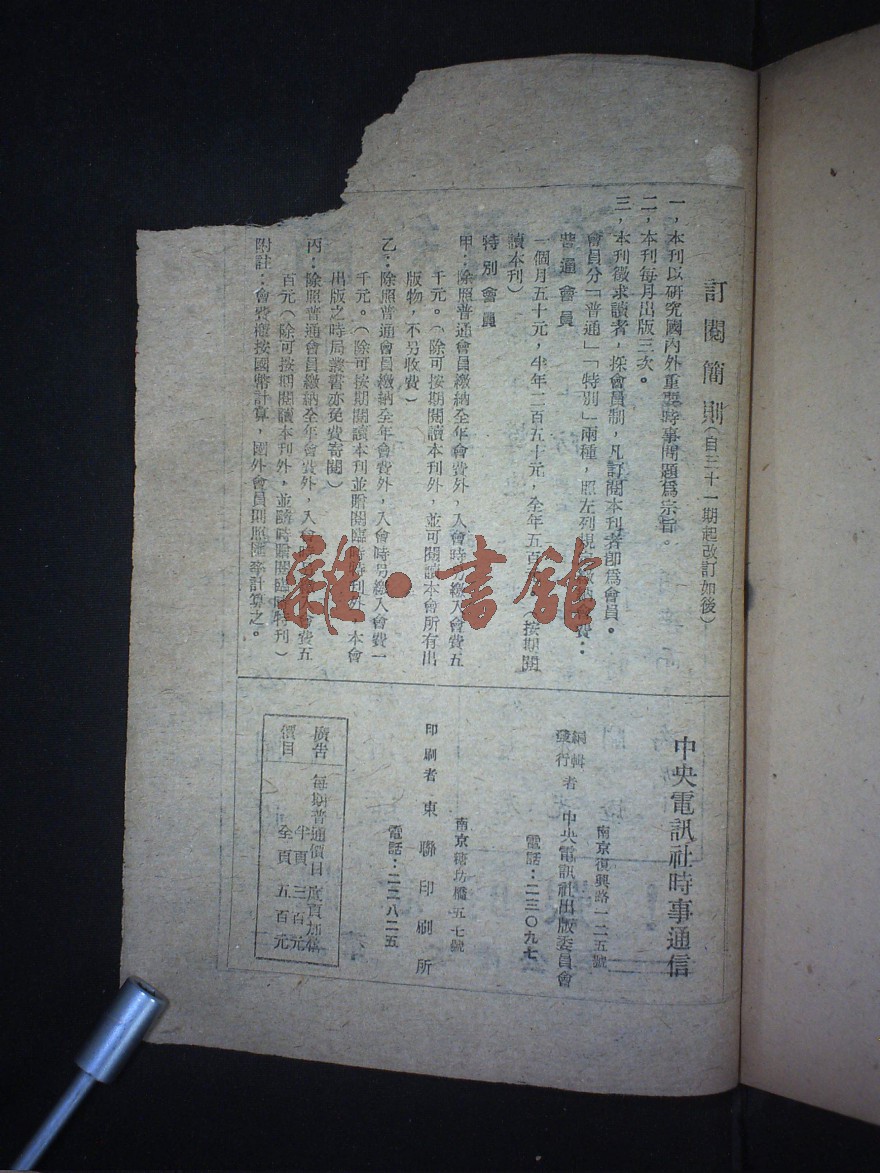 訂閱簡則(自三十一期起改訂如後)
一，本刊以研究國內外重要時事問題爲宗旨。
二，本刊每月出版三次。
三，本刊徵求讀者，採會員制，凡訂閱本刊者卽爲會員。
會員分「普通」「特別」兩種，照左列規 繳納會費：
普通會員
一個月五十元，半年二百五十元，全年五百 按期閱
讀本刊)
特別會員
甲：除照普通會員繳納全年會費外，入會時另繳入會費五
千元。(除可按期閱讀本刊外，並可閱讀本會所有出
版物，不另收費)
乙：除照普通會員繳納全年會費外，入會時另繳入會費一
千元。(除可按期閱讀本刊並贈閱臨時特刊外，本會
出版之時局叢書亦免費寄閱)
丙：除照普通會員繳納全年會費外，入會 費五
百元(除可按期閱讀本刊外，並隨時贈閱臨時特刊)
附註：會費概按國幣計算，國外會員則照匯率計算之。
中央電訊社時事通信
南京復興路一二五號
編輯
發行
者 中央電訊社出版委員會
電話：二三〇九七
南京 坊橋五七號
印刷者 東聯印刷所
電話：二二八二五
廣告
價目
每期普通價目 底頁加倍
半頁三百元
全頁五百元
雜·書館